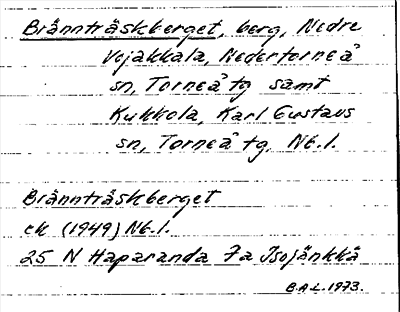 Brännträskberget, berg, Nedre
Vojakkala, Nedertorneå
sn, Torneå tg samt
Kukkola, Karl Gustavs
sn, Torneå tg, Nb.l.
Brännträskberget
ek (1949) Nb.l.
25 N Haparanda 7a Isojänkkä
B.A.L. 1973.